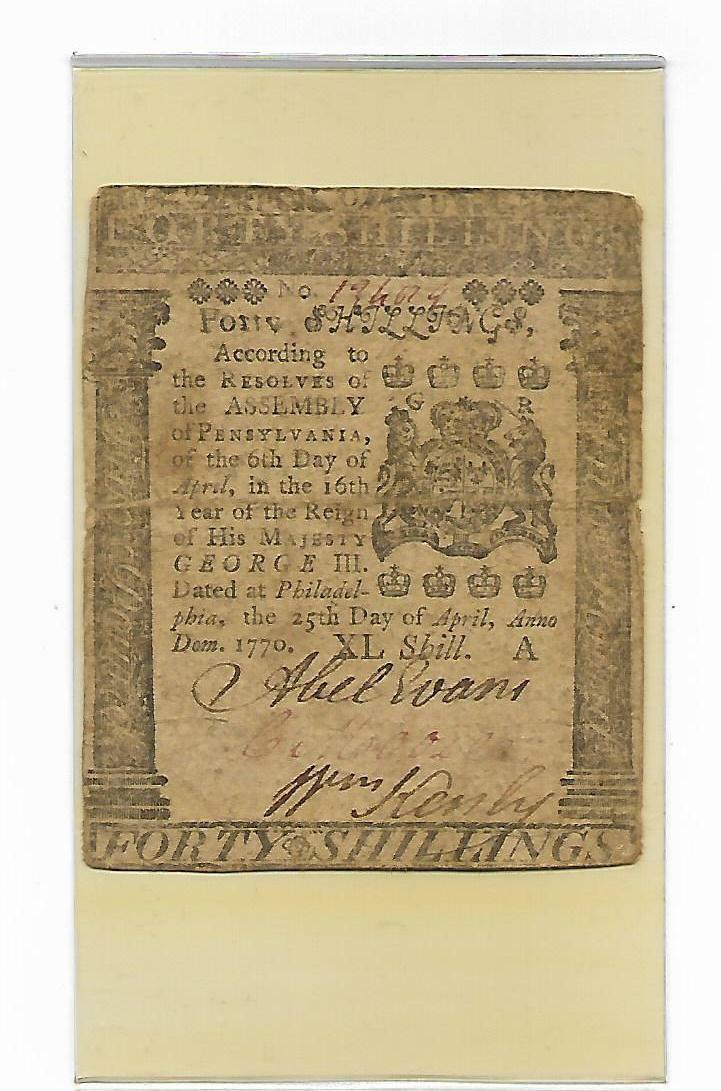 FORTY SHILLINGS
No.
Forty SHILLINGS,
According to
the RESOLVES of
the ASSEMBLY
of PENSYLVANIA,
of the 6th Day of
April, in the 16th
Year of the Reign
of His MAJESTY
GEORGE III.
Dated at Philadel-
phia, the 25th Day of April, Anno
Dom. 1776. XL Shill. A
G R
Abel Evans
Wm
FORTY SHILLINGS